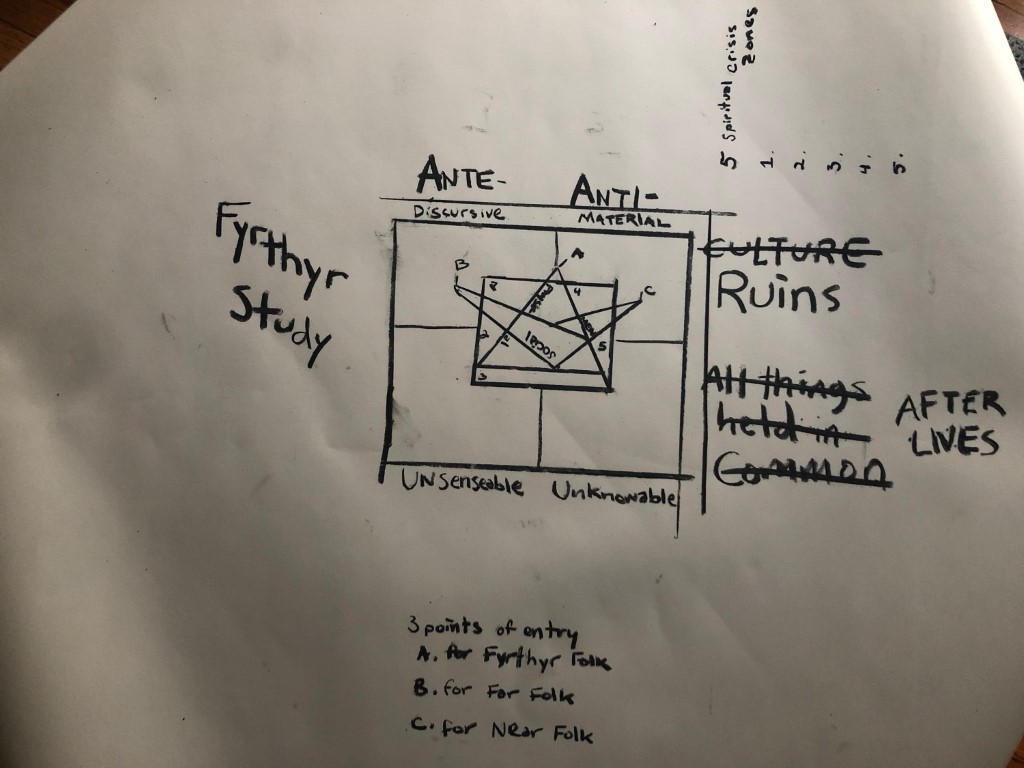 5 Spiritual crisis
zones
1.
2.
3.
4.
5.
ANTE-
ANTI-
Discursive
MATERIAL
Fyrthyr
Study
CULTURE
Ruins
All things
held in
Common
AFTER
LIVES
A
B
C
4
Social
5
3
UNSenseable
Unknowable
3 points of entry
A. for Fyrthyr Folk
B. for Far Folk
C. for Near Folk